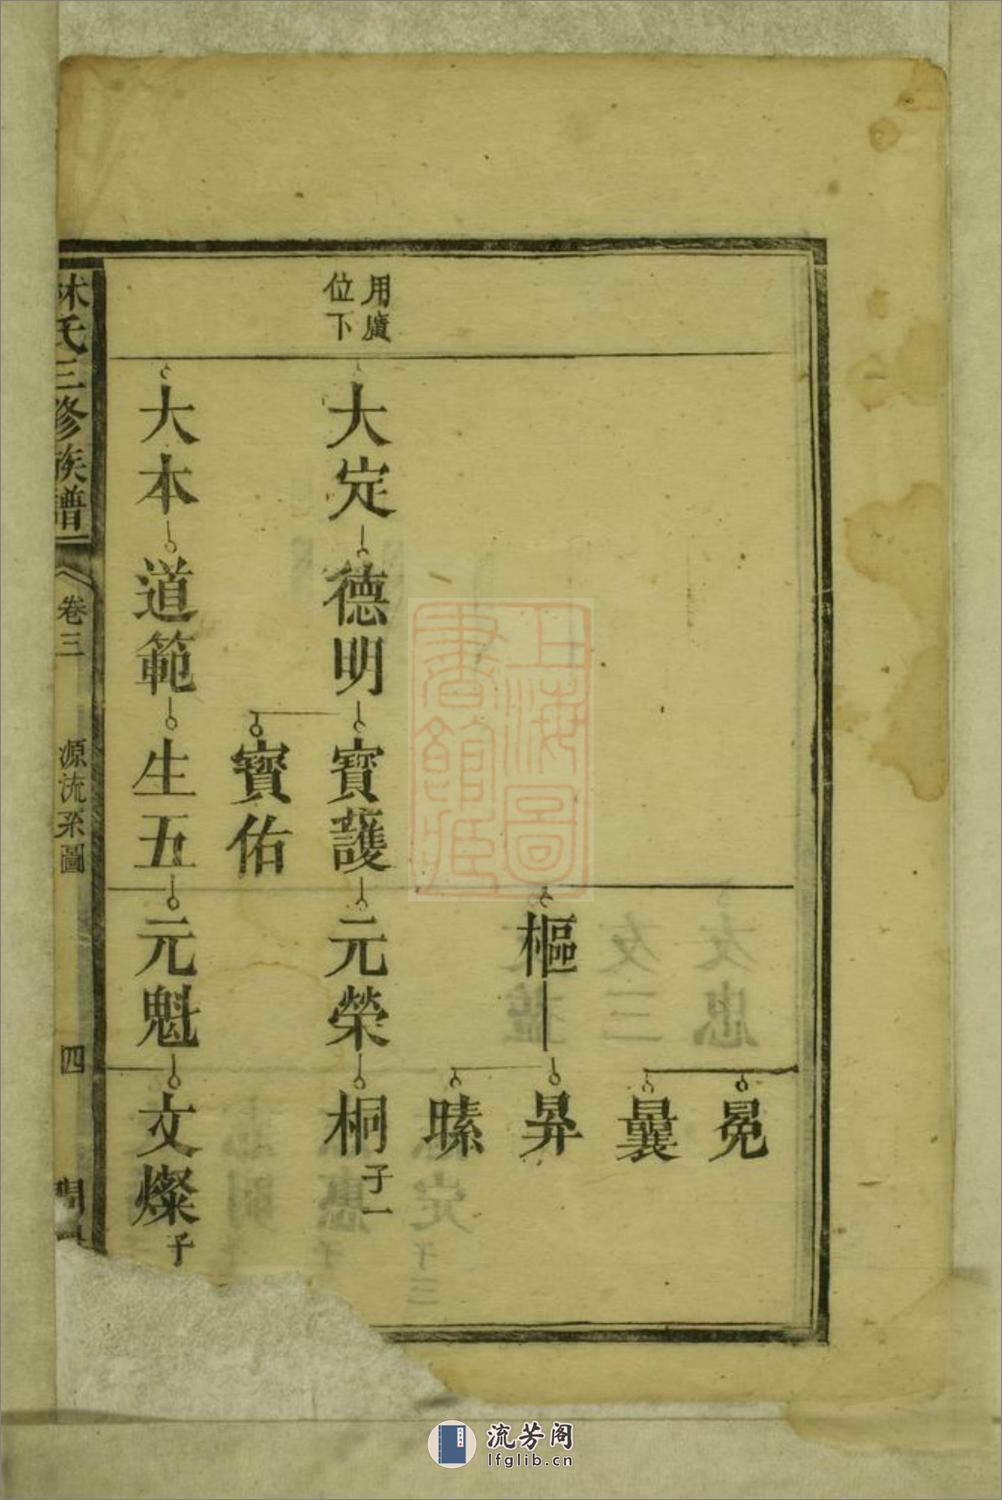 用廣
位下
冕
曩
樞
昇
㬥
大定
德明
寶護
元榮
桐
子一
寶佑
大本
道範
生五
元魁
文燦
子
林氏三修族譜
卷三
源流系圖
四
上海圖
書館藏
流芳阁
lfglib.cn